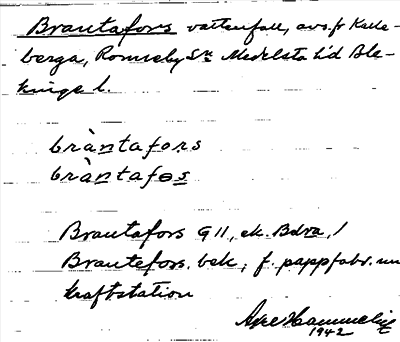 Brantafors vattenfall, avs. fr Kalle-
berga, Ronneby Sn Medelsta hd Ble-
kinge l.
bràntafors
bràntafɵs
Brantafors G 11, ek. Bdra, 1
Brantefors. bsk; f. pappfabr. nu
kraftstation
Åke Hammelin
1942